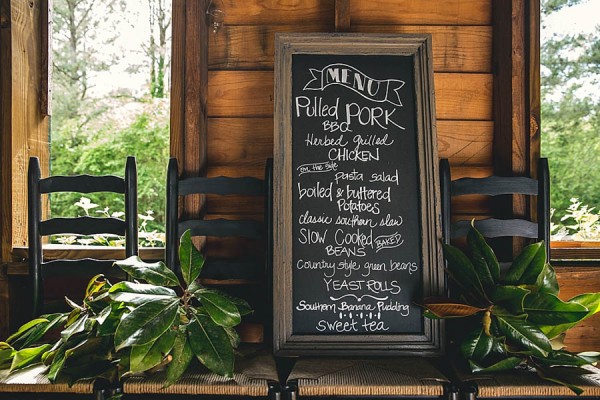 MENU
Pulled PORK
BBQ
Herbed grilled
CHICKEN
on the side
pasta salad
boiled & buttered
Potatoes
classic southern slaw
SLOW COOKED BAKED
BEANS
Country style green beans
YEAST ROLLS
Southern Banana Pudding
sweet tea